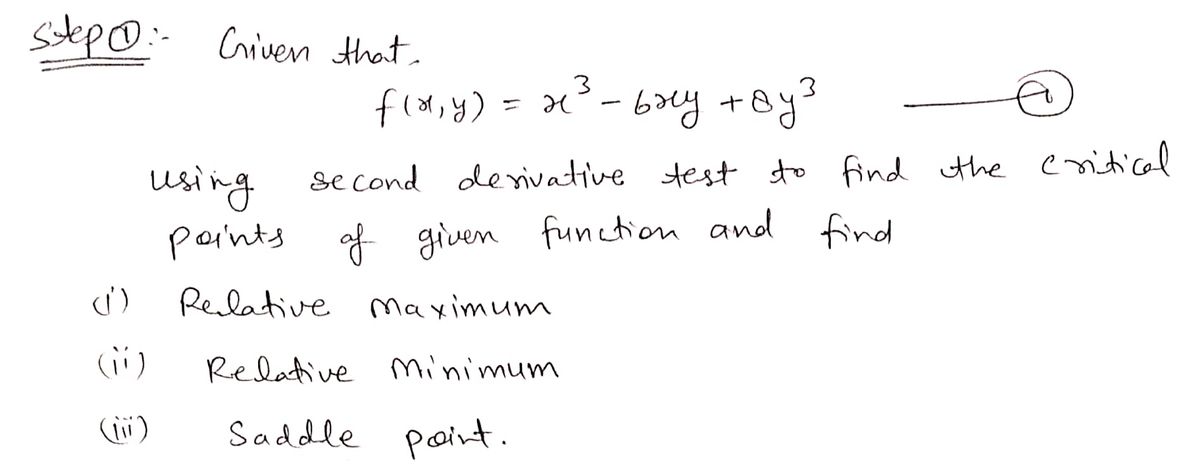 Step ①:- Given that.
f(x,y) = x³ - 6xy + 8y³ —— ①
using second derivative test to find the critical
points of given function and find
(i) Relative maximum
(ii) Relative minimum
(iii) Saddle point.